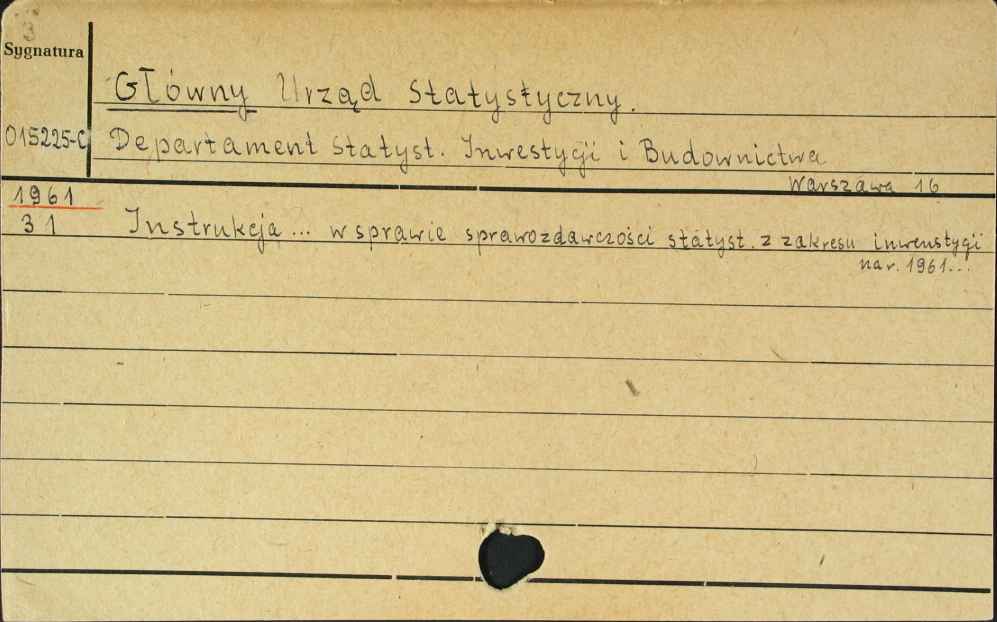 Sygnatura
Główny Urząd Statystyczny.
015225-C
Departament Statyst. Inwestycji i Budownictwa
Warszawa 16
1961
31
Instrukcja... w sprawie sprawozdawczości statyst. z zakresu inwenstycji
na r. 1961...